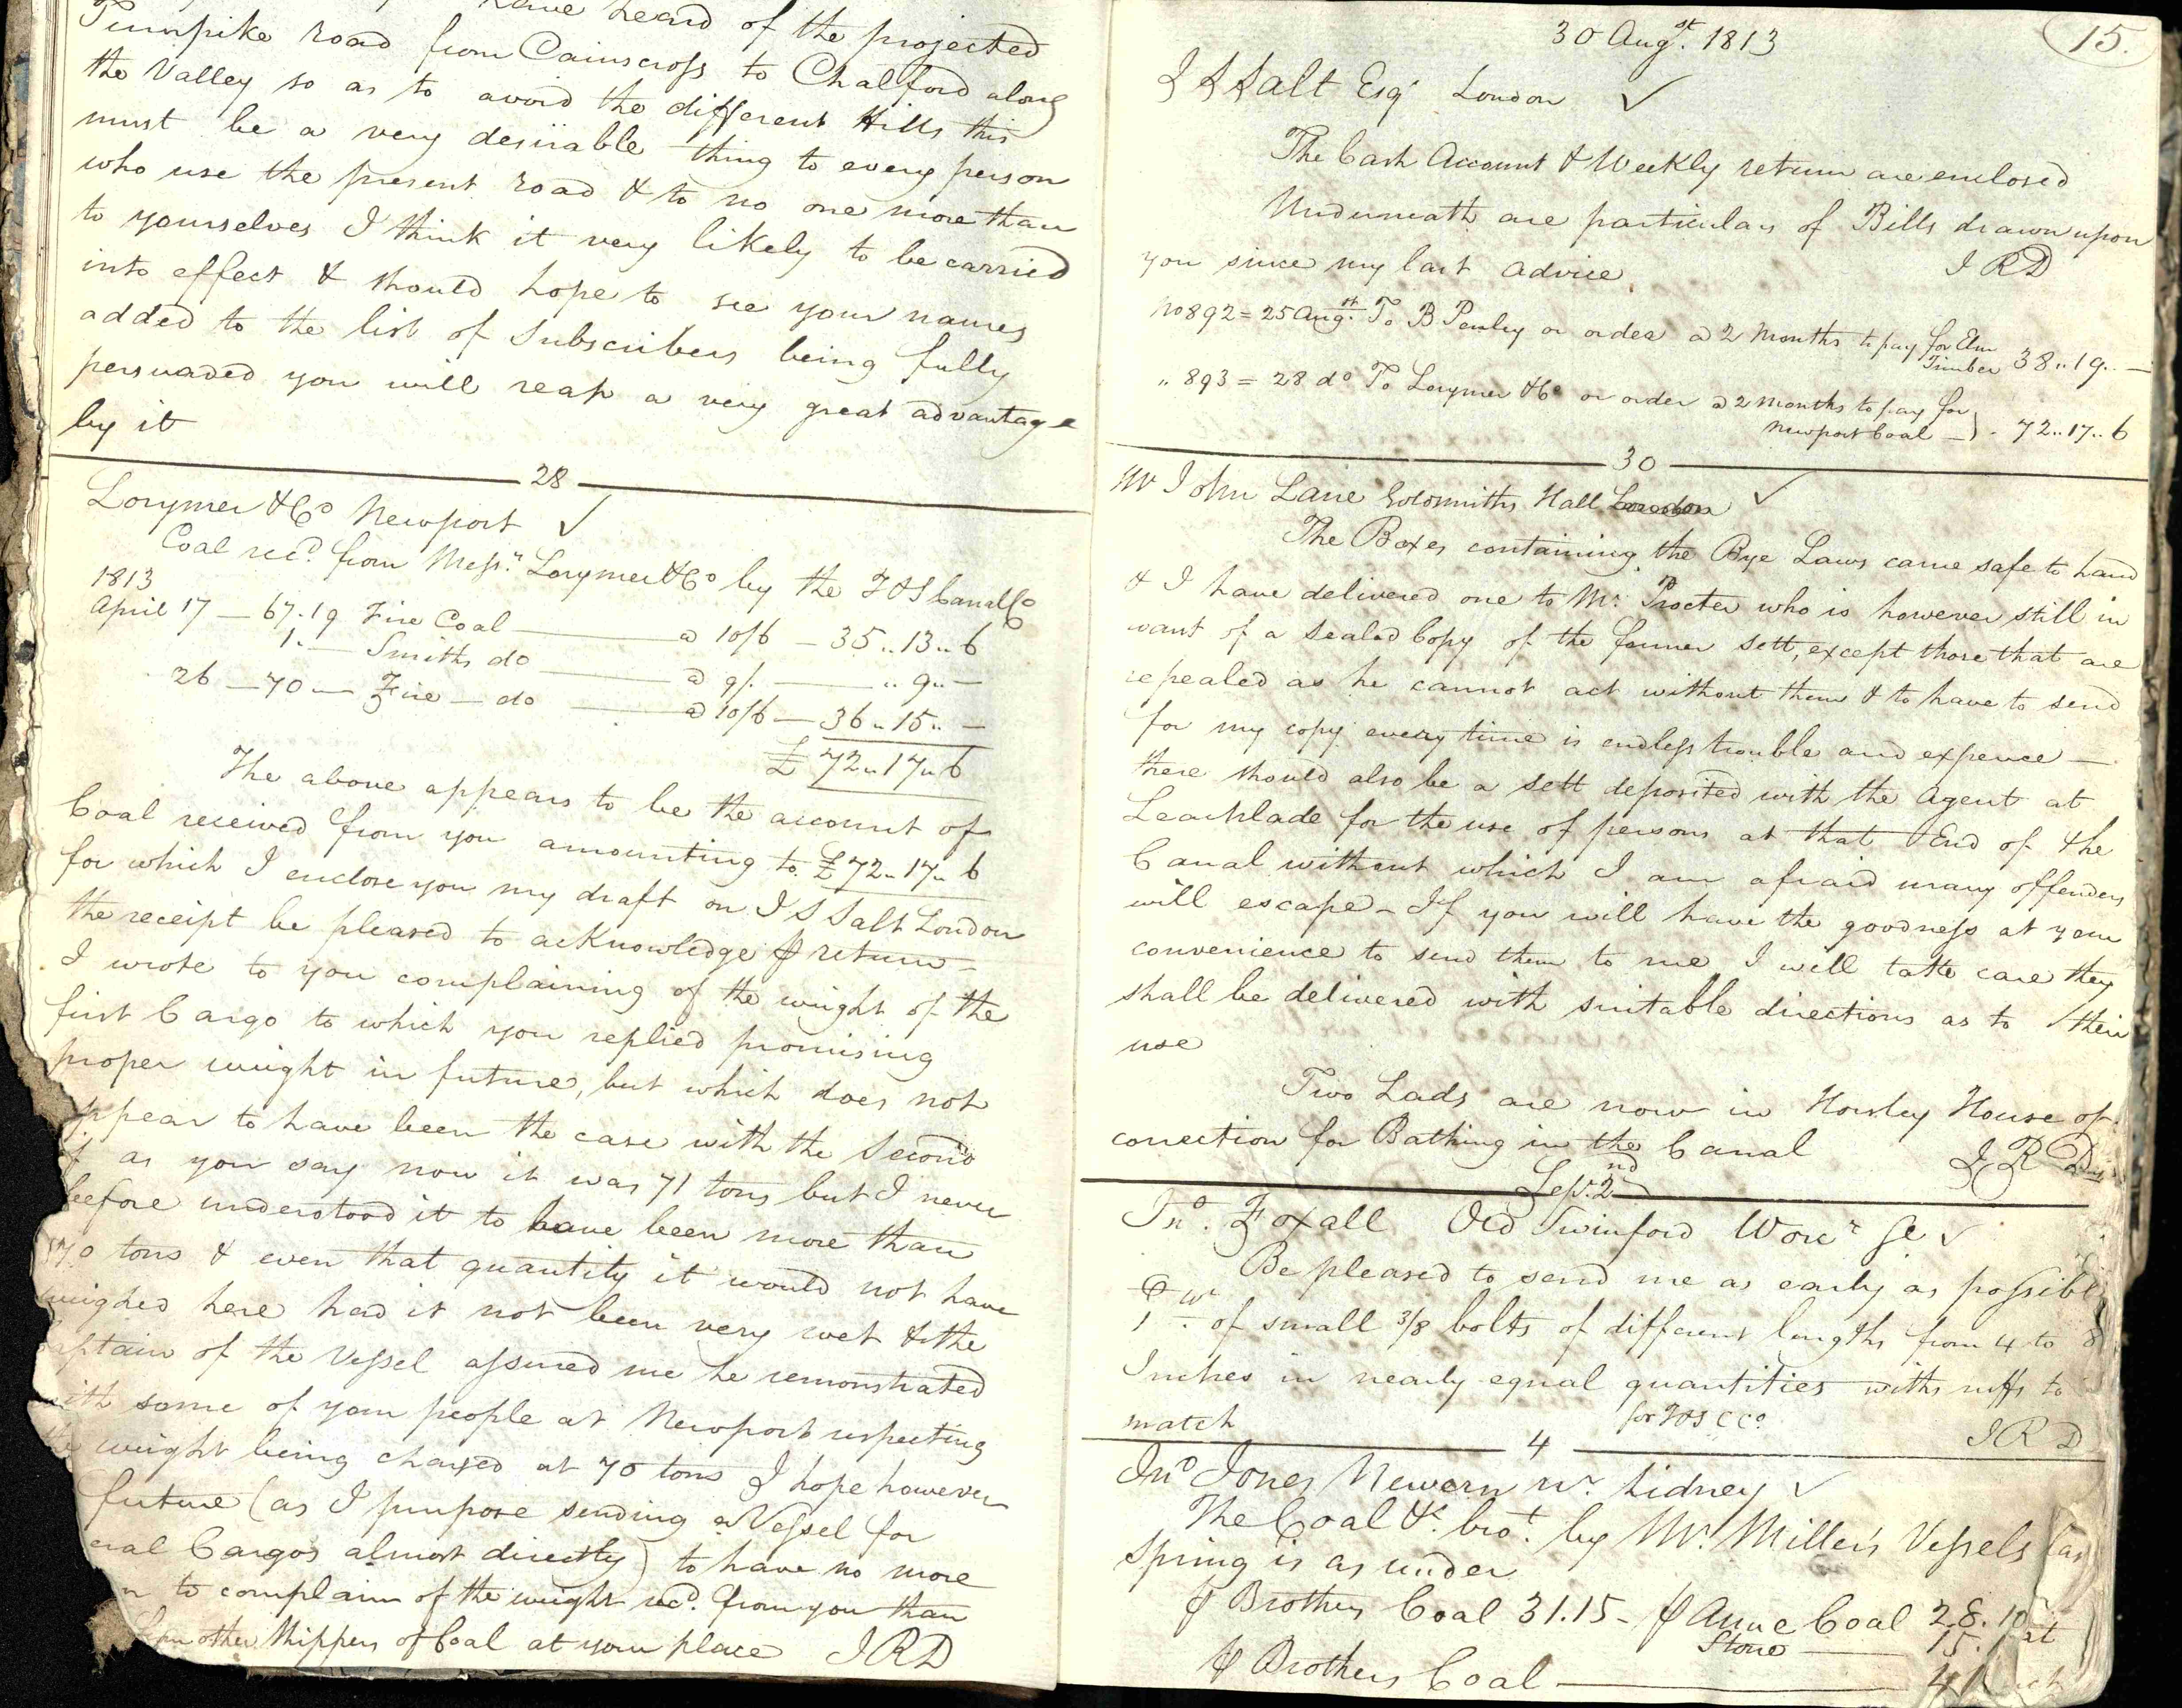 have heard of the projected
Turnpike road from Cainscross to Chalford along
the Valley so as to avoid the different Hills this
must be a very desirable thing to every person
who use the present road & to no one more than
to yourselves I think it very likely to be carried
into effect & should hope to see your names
added to the list of Subscribers being fully
persuaded you will reap a very great advantage
by it
28
Lorymer & Co Newport ✓
Coal recd. from Messrs. Lorymer & Co by the T & S Canal Co
1813
April 17 — 67.19 Fire Coal — a 10/6 — 35..13..6
1.— Smiths do — a 9/. — .. 9.. —
26 — 70 — Fire — do — a 10/6 — 36..15.. —
£ 72..17..6
The above appears to be the account of
Coal received from you amounting to £72..17..6
for which I enclose you my draft on I S Salt London
the receipt be pleased to acknowledge p return —
I wrote to you complaining of the weight of the
first Cargo to which you replied promising
proper weight in future, but which does not
ppear to have been the case with the Second
f as you say now it was 71 tons but I never
before understood it to have been more than
70 tons & even that quantity it would not have
weighed here had it not been very wet & the
aptain of the Vessel assured me he remonstrated
with some of your people at Newport respecting
the weight being charged at 70 tons I hope however
future (as I purpose sending a Vessel for
eral Cargos almost directly) to have no more
n to complain of the weight recd. from you than
from other Shippers of Coal at your place IRD
15.
30 Augst. 1813
I S Salt Esqr London ✓
The Cash Account & Weekly return are enclosed
Underneath are particulars of Bills drawn upon
you since my last advice. I R D
No 892 = 25 Augst. To B Penley or order a 2 Months to pay for Elm
Timber 38..19.. —
.. 893 = 28 do To Lorymer & Co or order a 2 Months to pay for
Newport Coal —} - 72..17..6
30
Mr John Lane Goldsmiths Hall London ✓
The Boxes containing the Bye Laws came safe to hand
& I have delivered one to Mr. Procter who is however still in
want of a Sealed Copy of the former Sett, except those that are
repealed as he cannot act without them & to have to send
for my copy every time is endless trouble and expence —
there should also be a Sett deposited with the Agent at
Leachlade for the use of persons at that End of the
Canal without which I am afraid many offenders
will escape — If you will have the goodness at your
convenience to send them to me I will take care they
shall be delivered with suitable directions as to their
use
Two Lads are now in Horsley House of
correction for Bathing in the Canal I R D
Sepr. 2nd
Jno. Foxall Old Swinford Worcr Se ✓
Be pleased to send me as early as possible
1 Cwt. of small 3/8 bolts of different lengths from 4 to 8
Inches in nearly equal quantities with nutts to
match for T&S C Co. I R D
4
Jno Jones Newern nr. Lidney ✓
The Coal &c. brot. by Mr. Miller's Vessels las
Spring is as under
p Brothers Coal 31.15 - p Anne Coal 28.10
Stone — 15.
p Brothers Coal — 41